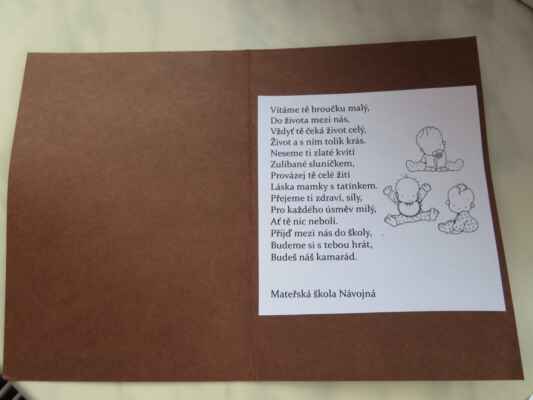 Vítáme tě broučku malý,
Do života mezi nás,
Vždyť tě čeká život celý,
Život a s ním tolik krás.
Neseme ti zlaté kvítí
Zulíbané sluníčkem,
Provázej tě celé žití
Láska mamky s tatínkem.
Přejeme ti zdraví, síly,
Pro každého úsměv milý,
Ať tě nic nebolí.
Přijď mezi nás do školy,
Budeme si s tebou hrát,
Budeš náš kamarád.
Mateřská škola Návojná